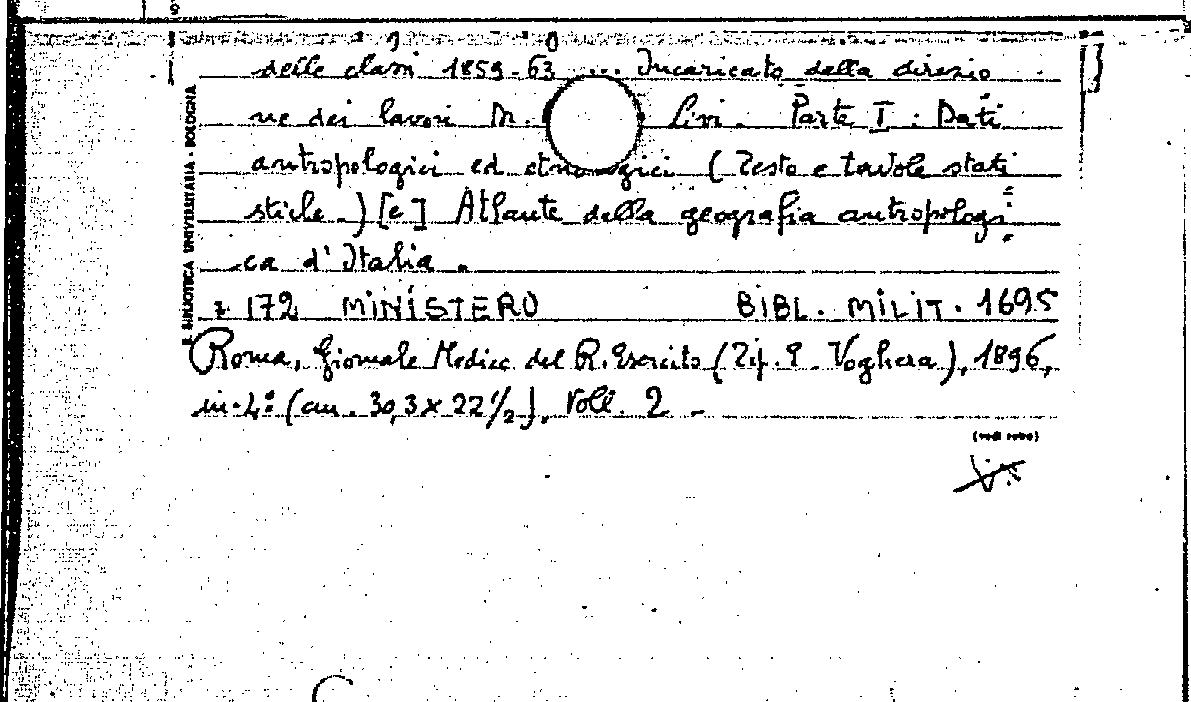 delle classi 1859-63 .... Incaricato della direzio
ne dei lavori Livi. Parte I: Dati
antropologici ed etnologici (Testo e tavole stati
stiche.) [e] Atlante della geografia antropologi
ca d'Italia.
z 172 MINISTERO BIBL. MILIT. 1695
Roma, Giornale Medico del R. Esercito (Tip. E. Voghera), 1896,
in-4º (cm. 30,3 x 22 1/2), Voll. 2 -
(vedi retro)
BIBLIOTECA UNIVERSITARIA - BOLOGNA